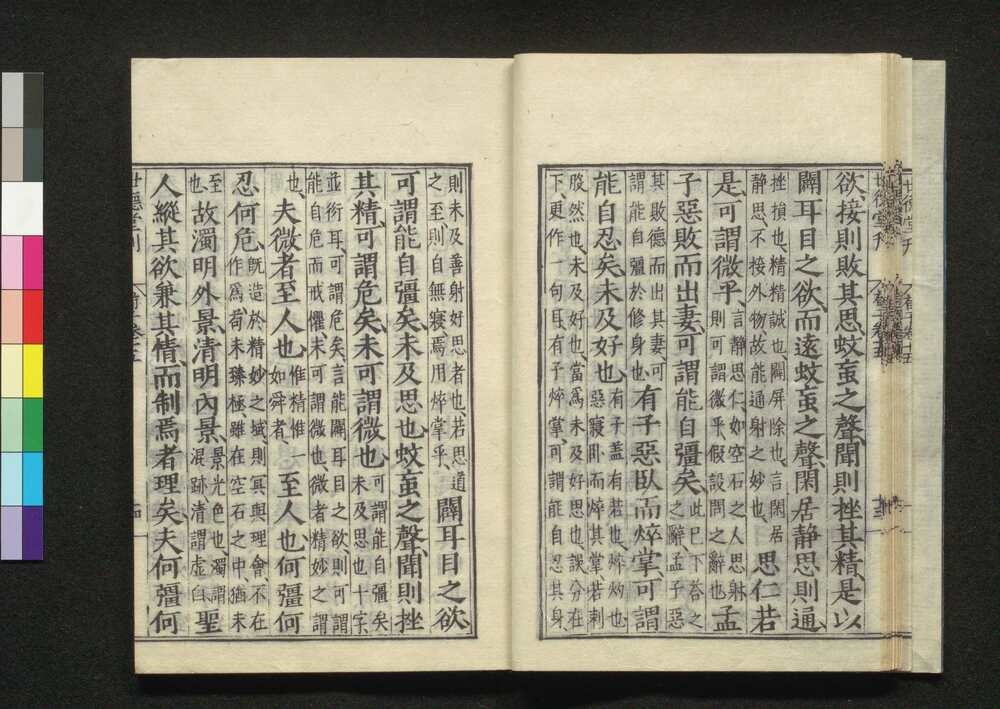 欲接則敗其思蚊䖟之聲聞則挫其精是以
闢耳目之欲而遠蚊䖟之聲閑居静思則通
挫損也精精誠也闢屏除也言閑居
静思不接外物故能通射之妙也
思仁若
是可謂微乎
言静思仁如空石之人思射
則可謂微乎假設問之辭也
孟
子惡敗而出妻可謂能自彊矣
此已下荅之
之辭孟子惡
其敗德而出其妻可
謂能自彊於修身也
有子惡臥而焠掌可謂
能自忍矣未及好也
有子盖有若也焠灼也
惡寢卧而焠其掌若刺
股然也未及好也當爲未及好思也誤分在
下更作一句耳有子焠掌可謂能自忍其身
則未及善射好思者也若思道
之至則自無寢焉用焠掌乎
闢耳目之欲
可謂能自彊矣未及思也蚊䖟之聲聞則挫
其精可謂危矣未可謂微也
可謂能自彊矣
未及思也十字
並衍耳可謂危矣言能闢耳目之欲則可謂
能自危而戒懼未可謂微也微者精妙之謂
也
夫微者至人也
惟精惟一
如舜者
至人也何彊何
忍何危
既造於精妙之域則冥與理會不在
作爲苟未臻極雖在空石之中猶未
至
也
故濁明外景清明內景
景光色也濁謂
混跡清謂虛白
聖
人縱其欲兼其情而制焉者理矣夫何彊何
世德堂刊